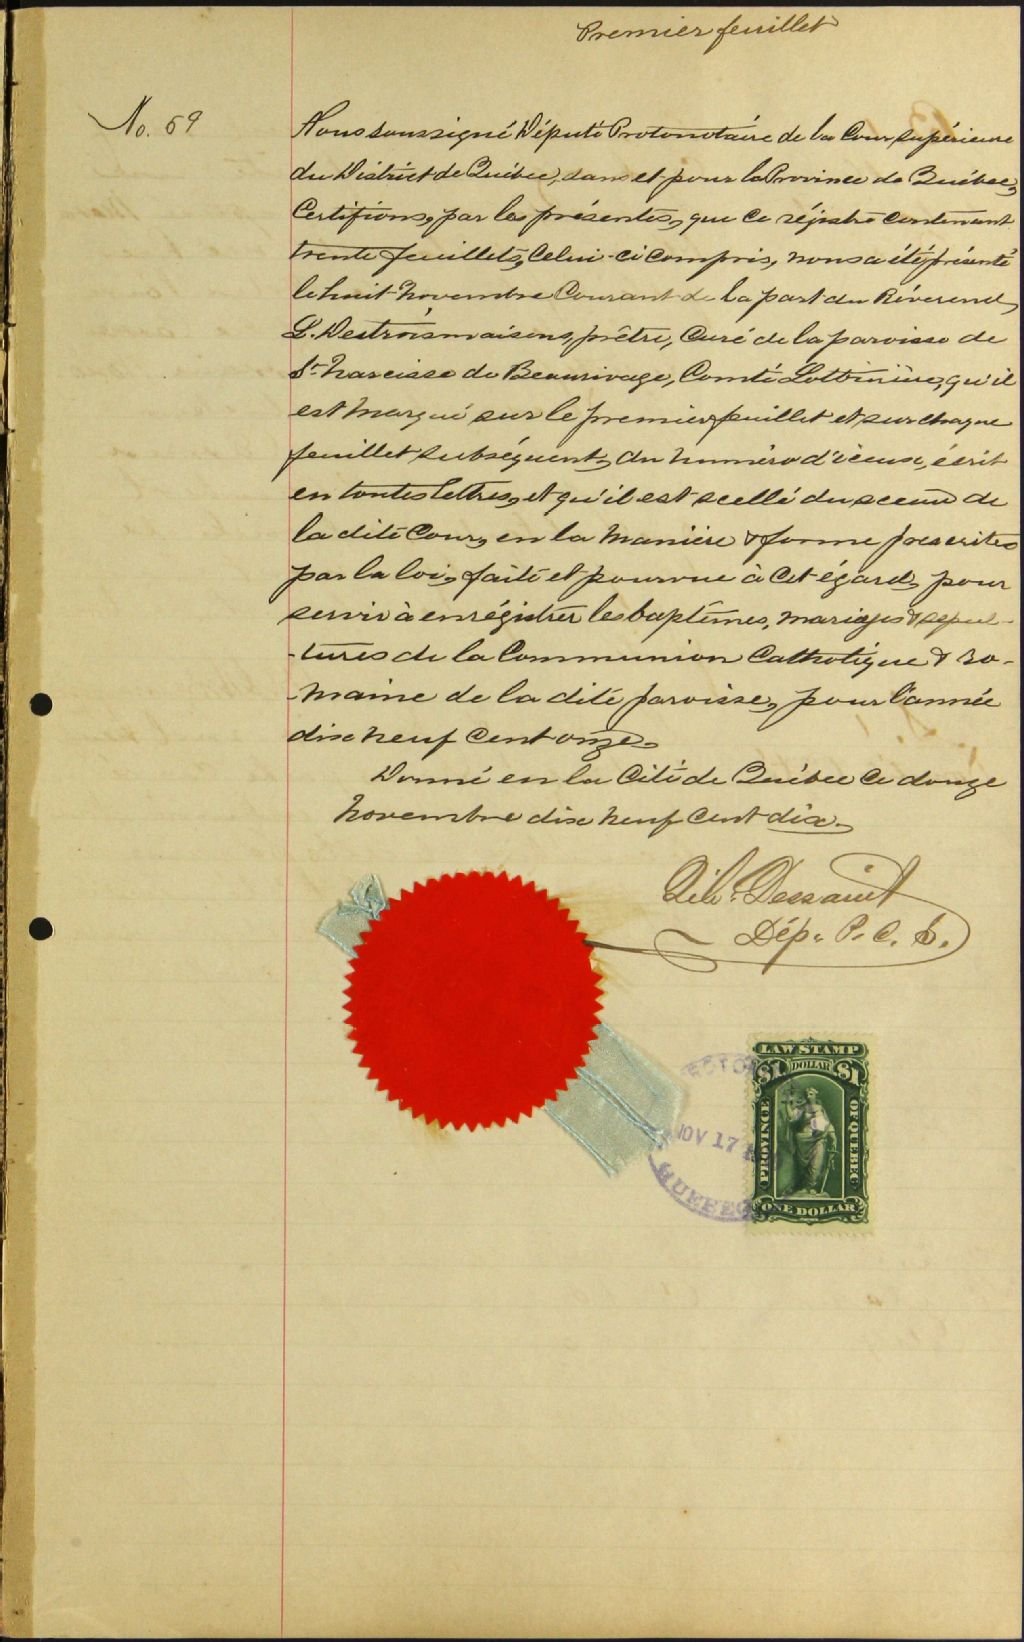 Premier feuillet
No. 69
Nous soussigné Député Protonotaire de la Cour supérieure
du District de Québec, dans et pour la Province de Québec,
Certifions, par les présentes, que ce régistre contenant
trente feuillets, celui-ci compris, nous a été présenté
le huit Novembre Courant de la part du Révérend
L. Destroismaisons, prêtre, Curé de la paroisse de
St Narcisse de Beaurivage, Comté Lotbinière, qu'il
est marqué sur le premier feuillet et sur chaque
feuillet subséquent, du numéro d'iceux, écrit
en toutes lettres, et qu'il est scellé du sceau de
la dite Cour, en la manière & forme prescrites
par la loi, faite et pourvue à cet égard, pour
servir à enrégistrer les baptêmes, mariages & sépul-
-tures de la Communion Catholique & Ro-
-maine de la dite paroisse, pour l'année
dix neuf cent onze.
Donné en la Cité de Québec ce douze
Novembre dix neuf cent dix.
Dessaint
Dép. P. C. S.
LAW STAMP
$1 DOLLAR $1
PROVINCE OF QUEBEC
ONE DOLLAR
NOV 17
QUEBEC